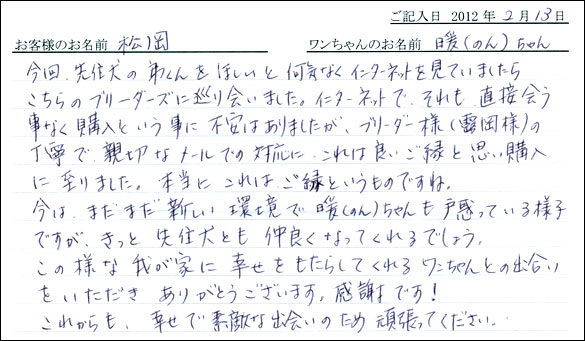 ご記入日 2012年2月13日
お客様のお名前 松岡 ワンちゃんのお名前 暖(のん)ちゃん
今回、先住犬の弟くんをほしいと何気なくインターネットを見ていましたら
こちらのブリーダーズに巡り会いました。インターネットで、それも、直接会う
事なく購入という事に不安はありましたが、ブリーダー様(露岡様)の
丁寧で、親切なメールでの対応に、これは良いご縁と思い購入
に至りました。本当にこれはご縁というものですね。
今は、まだまだ新しい環境で暖(のん)ちゃんも戸惑っている様子
ですが、きっと先住犬とも仲良くなってくれるでしょう。
この様な我が家に幸せをもたらしてくれるワンちゃんとの出会い
をいただきありがとうございます。感謝です!
これからも、幸せで素敵な出会いのため頑張ってください。